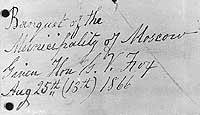 Banquet of the
Municipality of Moscow
Given Hon G. V. Fox
Aug 25th (13th) 1866